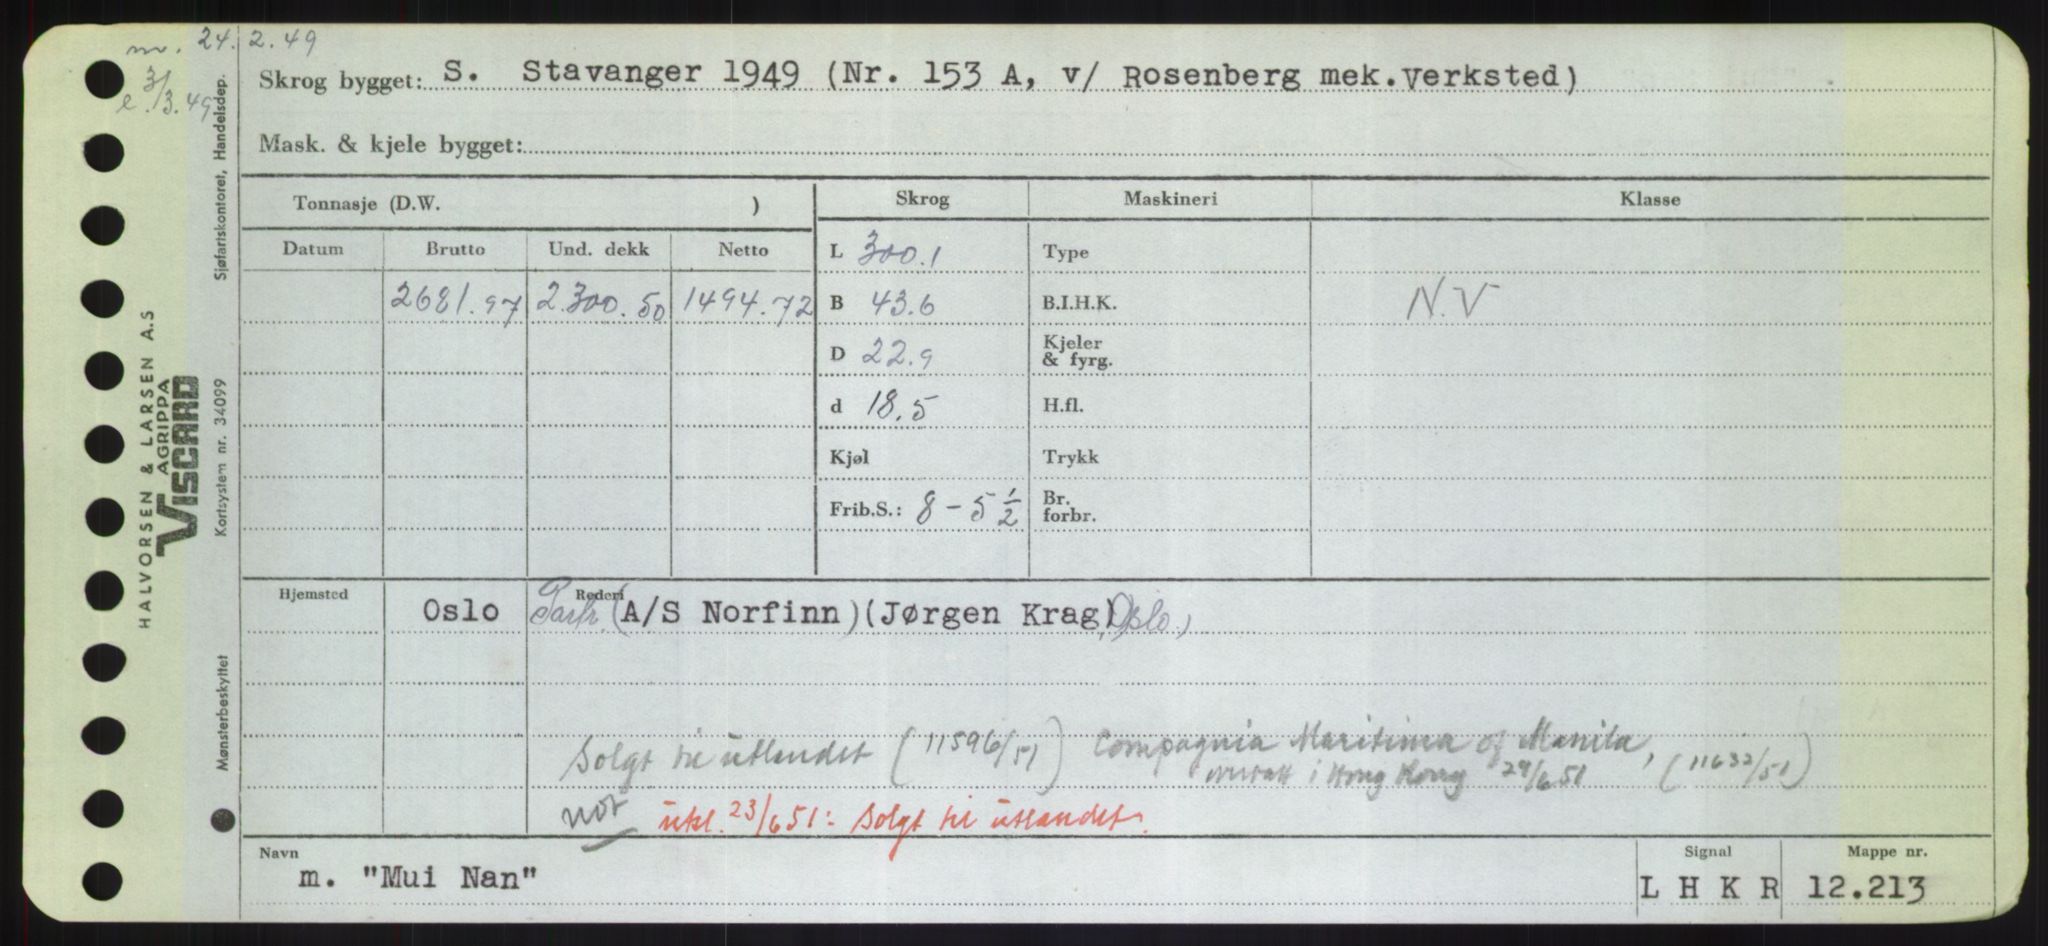 m. 24.2.49
e. 3/3.49
Skrog bygget: S. Stavanger 1949 (Nr. 153 A, v/ Rosenberg mek.Verksted)
Mask. & kjele bygget:
Tonnasje (D.W. )
Skrog Maskineri Klasse
Datum Brutto Und. dekk Netto
L 300.1 Type
2681.97 2.300.50 1494.72
B 43.6 B.I.H.K. N.V
D 22.9 Kjeler & fyrg.
d 18.5 H.fl.
Kjøl Trykk
Frib.S.: 8-5 1/2 Br. forbr.
Hjemsted Rederi
Oslo Partr. (A/S Norfinn)(Jørgen Krag), Oslo,
Solgt til utlandet (11596/51) Compagnia Maritima of Manila,
i Hong Kong 29/6.51 (11632/51)
not utkl. 23/6 51: Solgt til utlandet.
Navn
m. "Mui Nan"
Signal
L H K R
Mappe nr.
12.213
Sjøfartskontoret, Handelsdep.
Kortsystem nr. 34099
Mønsterbeskyttet
HALVORSEN & LARSEN A.S
AGRIPPA
VISCARD